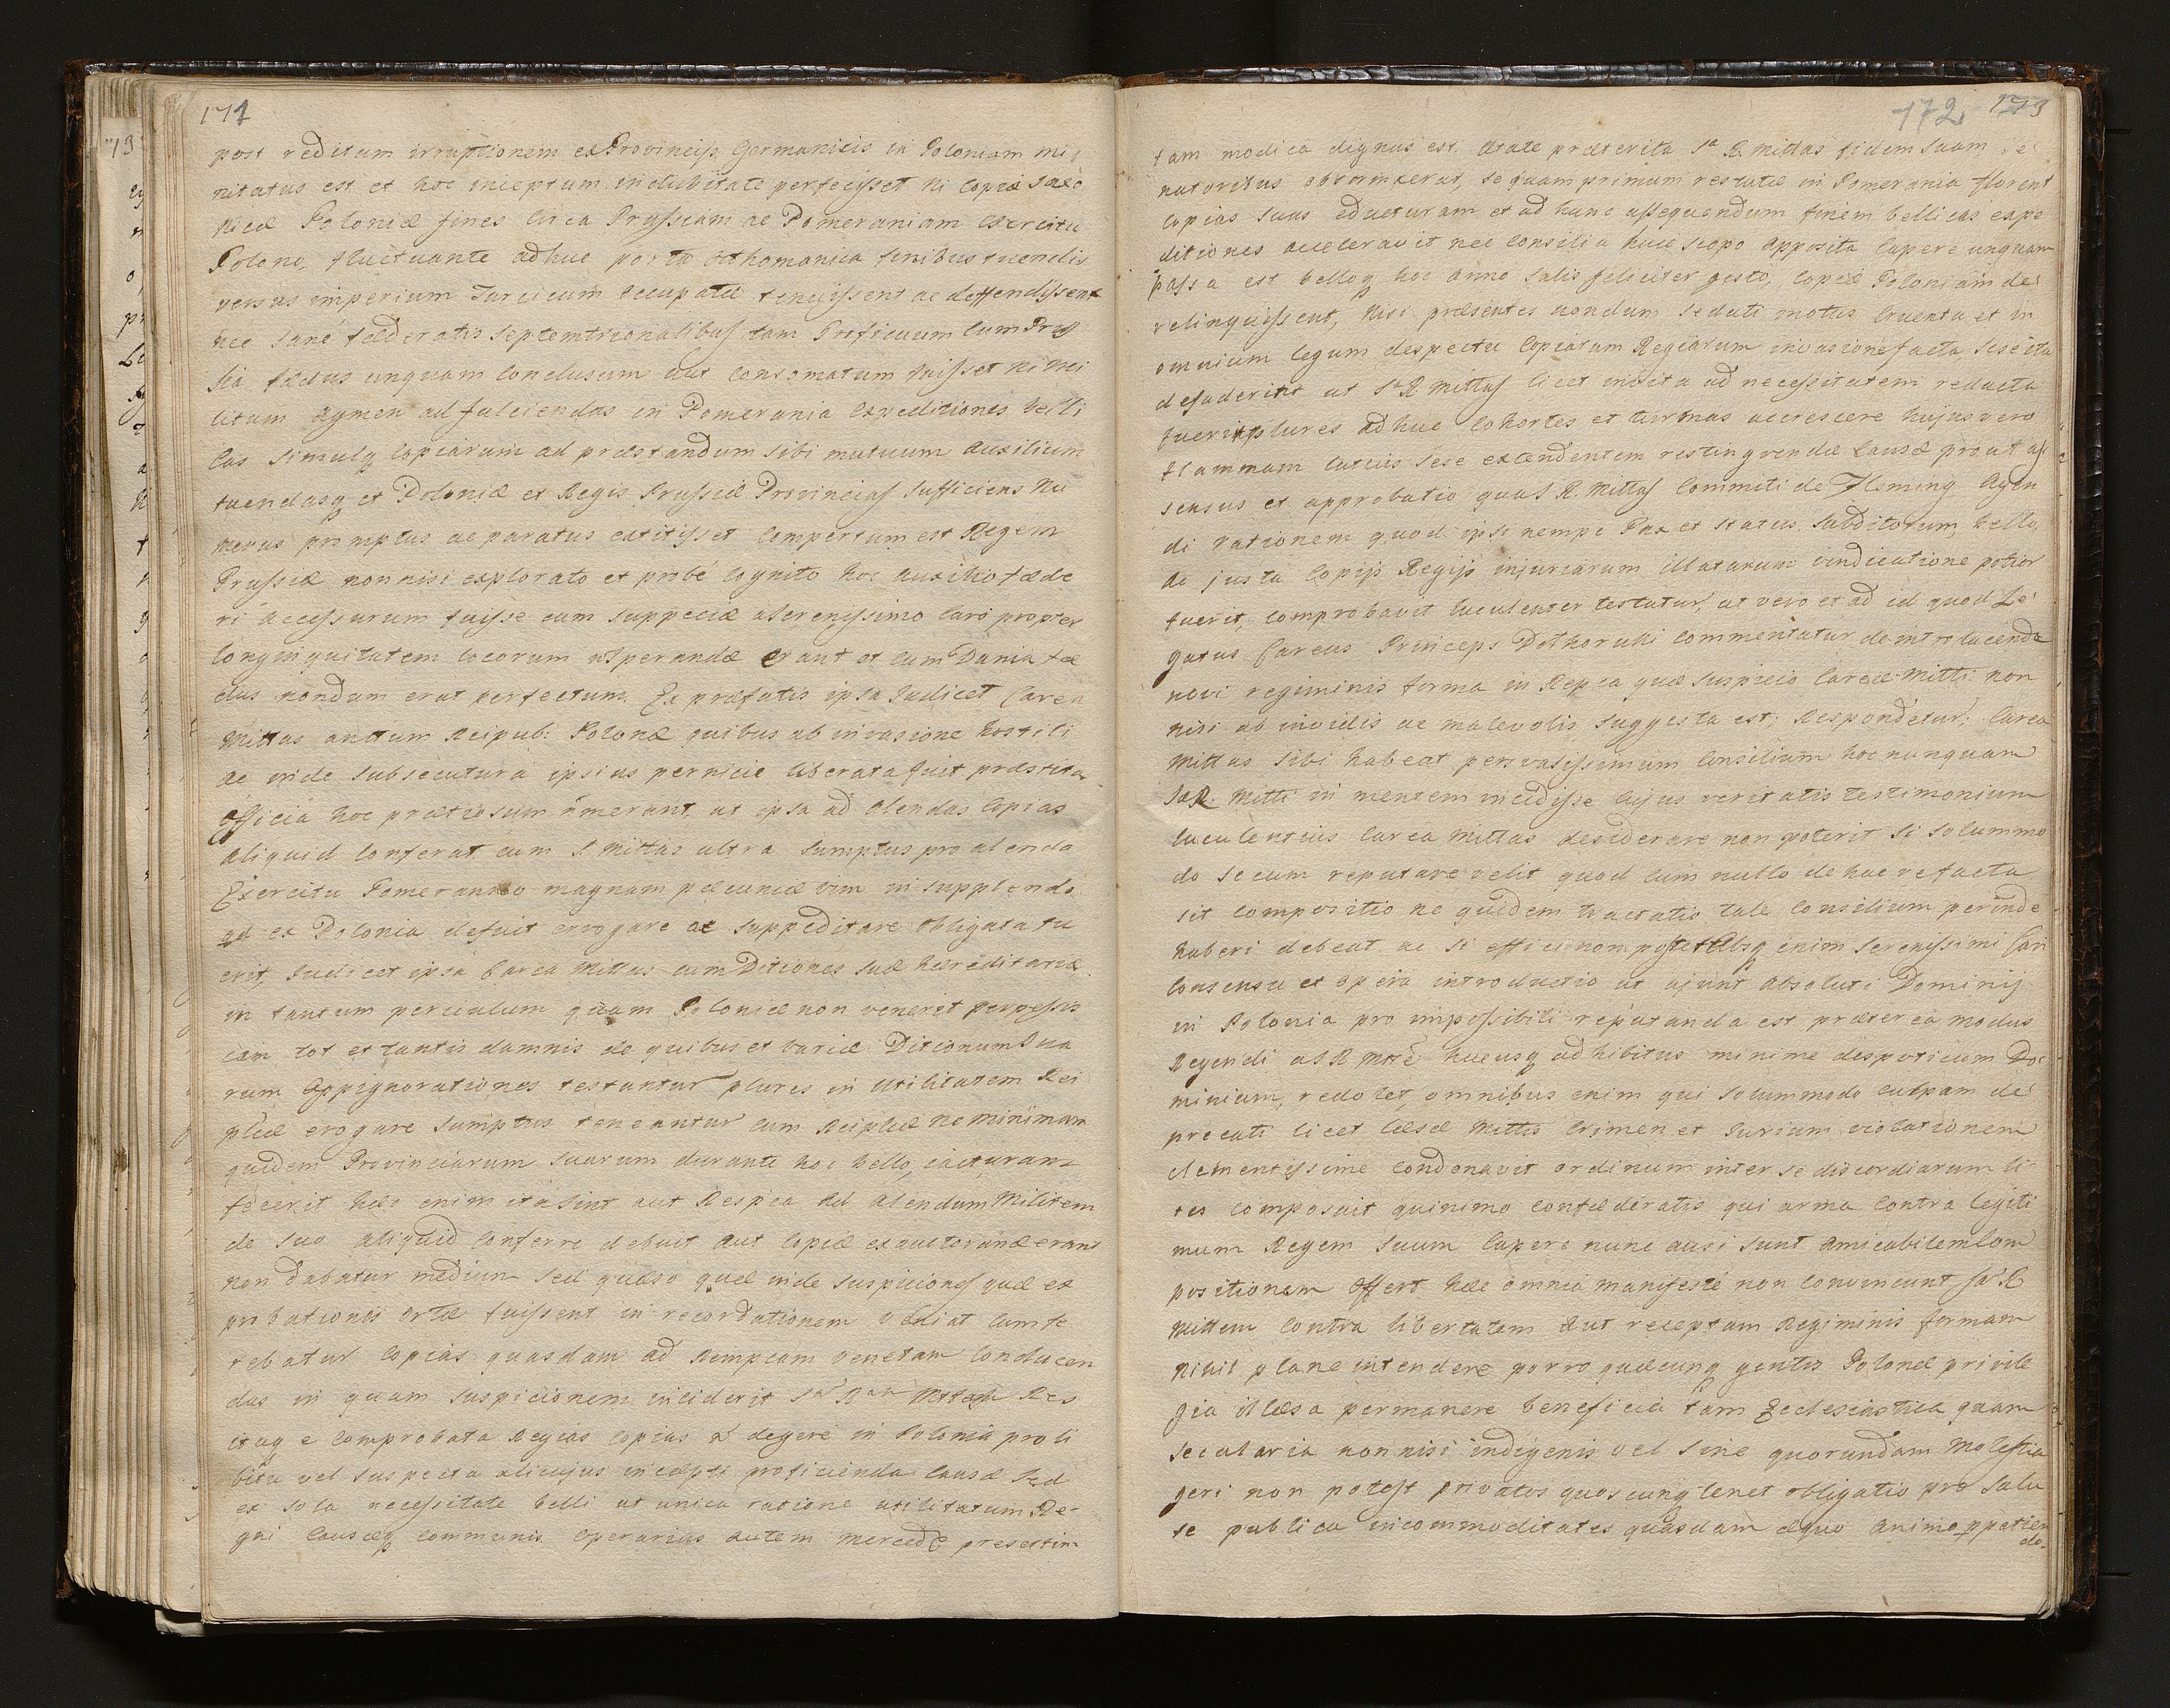 171
post reditum irruptionem ex Provinciis Germanicis in Poloniam mi
nitatus est et hoc inceptum indubitate perfecisset ni copiæ Saxo
nicæ Poloniæ fines circa Prussiam ac Pomeraniam Exercitu
Polono, fluctuante adhuc porta otthomanica finibus tuendis
versus imperium Turcicum occupatæ tenuissent ac deffendissent
nec sane fæderatis septemtrionalibus tam Proficuum cum Prus
sia fædus unquam conclusum aut consomatum fuisset ni mi
litum agmen ad fulciendas in Pomerania expeditiones belli
cas simulq copiarum ad præstandum sibi mutuum auxilium
tuendasq et Poloniæ et Regis Prussiæ Provincias sufficiens nu
merus promptus ac paratus extitisset compertum est Regem
Prussiæ non nisi explorato et probé cognito hoc auxilio fæde
ri accessurum fuisse cum suppeciæ a Serenissimo Caro propter
longinquitatem locorum n sperandæ erant et cum Dania fæ
dus nondum erat perfectum. Ex præfatis ipsa Judicet Carea
Mittas an tum Reipub: Polonæ quibus ab invasione hostili
ac inde subsecutura ipsius pernicie liberata fuit præstita
officia hoc prætiosum n merant, ut ipsa ad alendas copias
aliquid conferat cum S Mittas ultra sumptus pro alendo
Exercitu Pomeranico magnam pæcuniæ vim in supplendo
qd ex Polonia defuit errogare ac suppeditare obligata fu
erit, Judicet ipsa Carea Mittas cum Ditiones suæ hæreditariæ
in tantum periculum quam Poloniæ non venerit perpessis
iam tot et tantis damnis de quibus et variæ Ditionum Sua
rum oppignorationes testantur plures in Utilitatem Rei
plicæ erogare sumptus teneantur cum Reiplicæ ne minimam
quidem Provinciarum suarum durante hoc bello, iacturam
fecerit hæc enim ita sint aut Respca ad alendum Militem
de suo aliquid conferre debuit aut copiæ exauctorandæ erant
non dabatur medium sed quæso quæ inde suspiciones quæ ex
probationis ortæ fuissent in recordationem veniat cum fe
rebatur copias quasdam ad Rempcam Venetam conducen
das in quam suspicionem inciderit Sa Ra Mttas Res
itaq e comprobata Regias copias n degere in Polonia pro li
bitu vel suspecta alicujus incepti proficienda causa sed
ex sola necessitate belli ut unica ratione utilitatum Re-
gni causæq communis operarius autem mercede presertim
172 173
tam modica dignus est. Ætate præterita Sa R. Mittas fidem suam se
natoribus obstrinxerat, se quamprimum res tutæ in Pomerania florent
copias suas educturam et ad hunc assequendum finem bellicas expe
ditiones acceleravit nec consilia huic scopo apposita capere unquam
passa est belloq hoc anno satis feliciter gesto, copiæ Poloniam de
relinquissent, nisi præsentes nondum sedati motus cruenta et in
omnium legum despectu copiarum Regiarum invasione facta sese ita
defuderint ut Sa R Mittas licet invita ad necessitatem redacta
fuerit plures adhuc cohortes et turmas accrescere hujus vero
flammam latius sese extendentem restingvendæ causæ prout as
sensus et approbatio qua S R. Mittas Commiti de Fleming Agen
di rationem quod ipsi nempe Pax et status subditorum, bello,
ac justa copiis Regiis injuriarum illatarum vindicatione potior
fuerit, comprobavit luculenter testatur, ut vero et ad id quod Le
gatus Careus Princeps Dolhoruki commentatur de introducenda
novi regiminis forma in Repca quæ suspicio Careæ Mitti non
nisi ab invidis ac malevolis suggesta est; Respondetur: Carea
Mittas sibi habeat persvasissimum Consilium hoc nunquam
Sa R. Mitti in mentem incidisse cujus veritatis testimonium
luculentius Carea Mittas desiderare non poterit si solummo
do secum reputare velit quod cum nullo de hac re facta
sit compositio ne quidem tractatio tale consilium perinde
haberi debeat ac si effici non posset Absq enim Serenissimi Cari
consensu et opera introductio ut ajunt absoluti Dominij
in Polonia pro impossibili reputanda est præterea modus
Regendi a S R Mtte hucusq adhibitus minime despoticum Do
minium, redolet, omnibus enim qui solummodo culpam de
precati licet læsæ Mittis crimen et Jurium violationem
clementissime condonavit ordinum inter se discordiarum li-
tes composuit quinimo confæderatis qui arma contra legiti
mum Regem suum capere nunc ausi sunt amicabilem Com
positionem offert hæc omnia manifesté non convincunt Sa R
Mittem contra libertatem aut receptam Regiminis formam
nihil plane intendere porro quæcunq gentis Polonæ privile
gia illæsa permanere beneficia tam Ecclesiastica quam
secularia nonnisi indigenis vel sine quorundam molestia
geri non potest privatos quoscunq tenet obligatio pro salu
te publica incommoditates quasdam æquo animo ppetien
do-